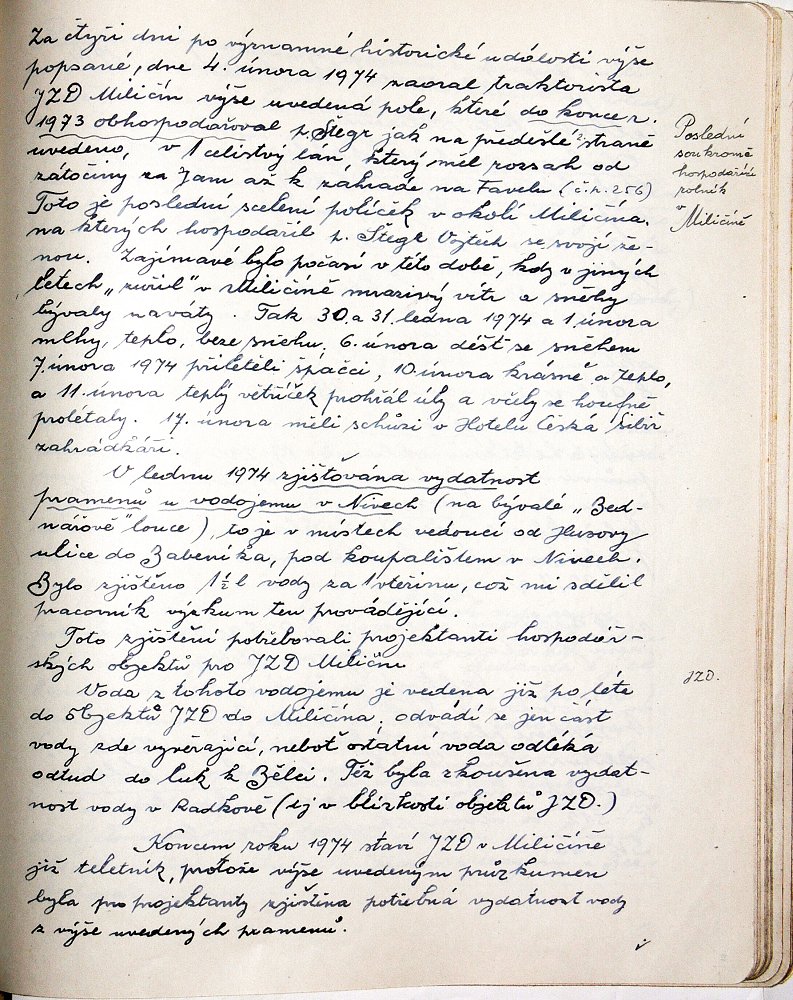 Za čtyři dni po významné historické události výše
popsané, dne 4. února 1974 zaoral traktorista
JZD Miličín výše uvedená pole, které do konce r.
1973 obhospodařoval p. Štegr jak na předešlé 2. straně
uvedeno, v 1 celistvý lán, který měl rozsah od
zátočiny za Jam až k zahradě na Favelu (č.p. 256)
Toto je poslední scelení políček v okolí Miličína,
na kterých hospodařil p. Štegr Vojtěch se svojí že-
nou. Zajímavé bylo počasí v této době, kdy v jiných
letech „zuřil" v Miličíně mrazivý vítr a sněhy
bývaly naváty. Tak 30. a 31. ledna 1974 a 1. února
mlhy, teplo, beze sněhu, 6. února déšť se sněhem
7. února 1974 přiletěli špačci, 10. února krásně a teplo,
a 11. února teplý větříček prohřál úly a včely se houfně
prolétaly. 17. února měli schůzi v Hotelu Česká Sibiř
zahrádkáři.
V lednu 1974 zjišťována vydatnost
pramenů u vodojemu v Nivech (na bývalé „Bed-
nářově" louce), to je v místech vedoucí od Husovy
ulice do Babeníka, pod koupalištem v Nivech.
Bylo zjištěno 1 ½ l vody za 1 vteřinu, což mi sdělil
pracovník výzkum ten provádějící.
Toto zjištění potřebovali projektanti hospodář-
ských objektů pro JZD Miličín
Voda z tohoto vodojemu je vedena již po léta
do objektů JZD do Miličína, odvádí se jen část
vody zde vyvěrající, neboť ostatní voda odtéká
odtud do luk k Bělci. Též byla zkoušena vydat-
nost vody v Radkově (tj v blízkosti objektů JZD.)
Koncem roku 1974 staví JZD v Miličíně
již teletník, protože výše uvedeným průzkumem
byla pro projektanty zjištěna potřebná vydatnost vody
z výše uvedených pramenů.
Poslední
soukromě
hospodařící
rolník
v
Miličíně
JZD.